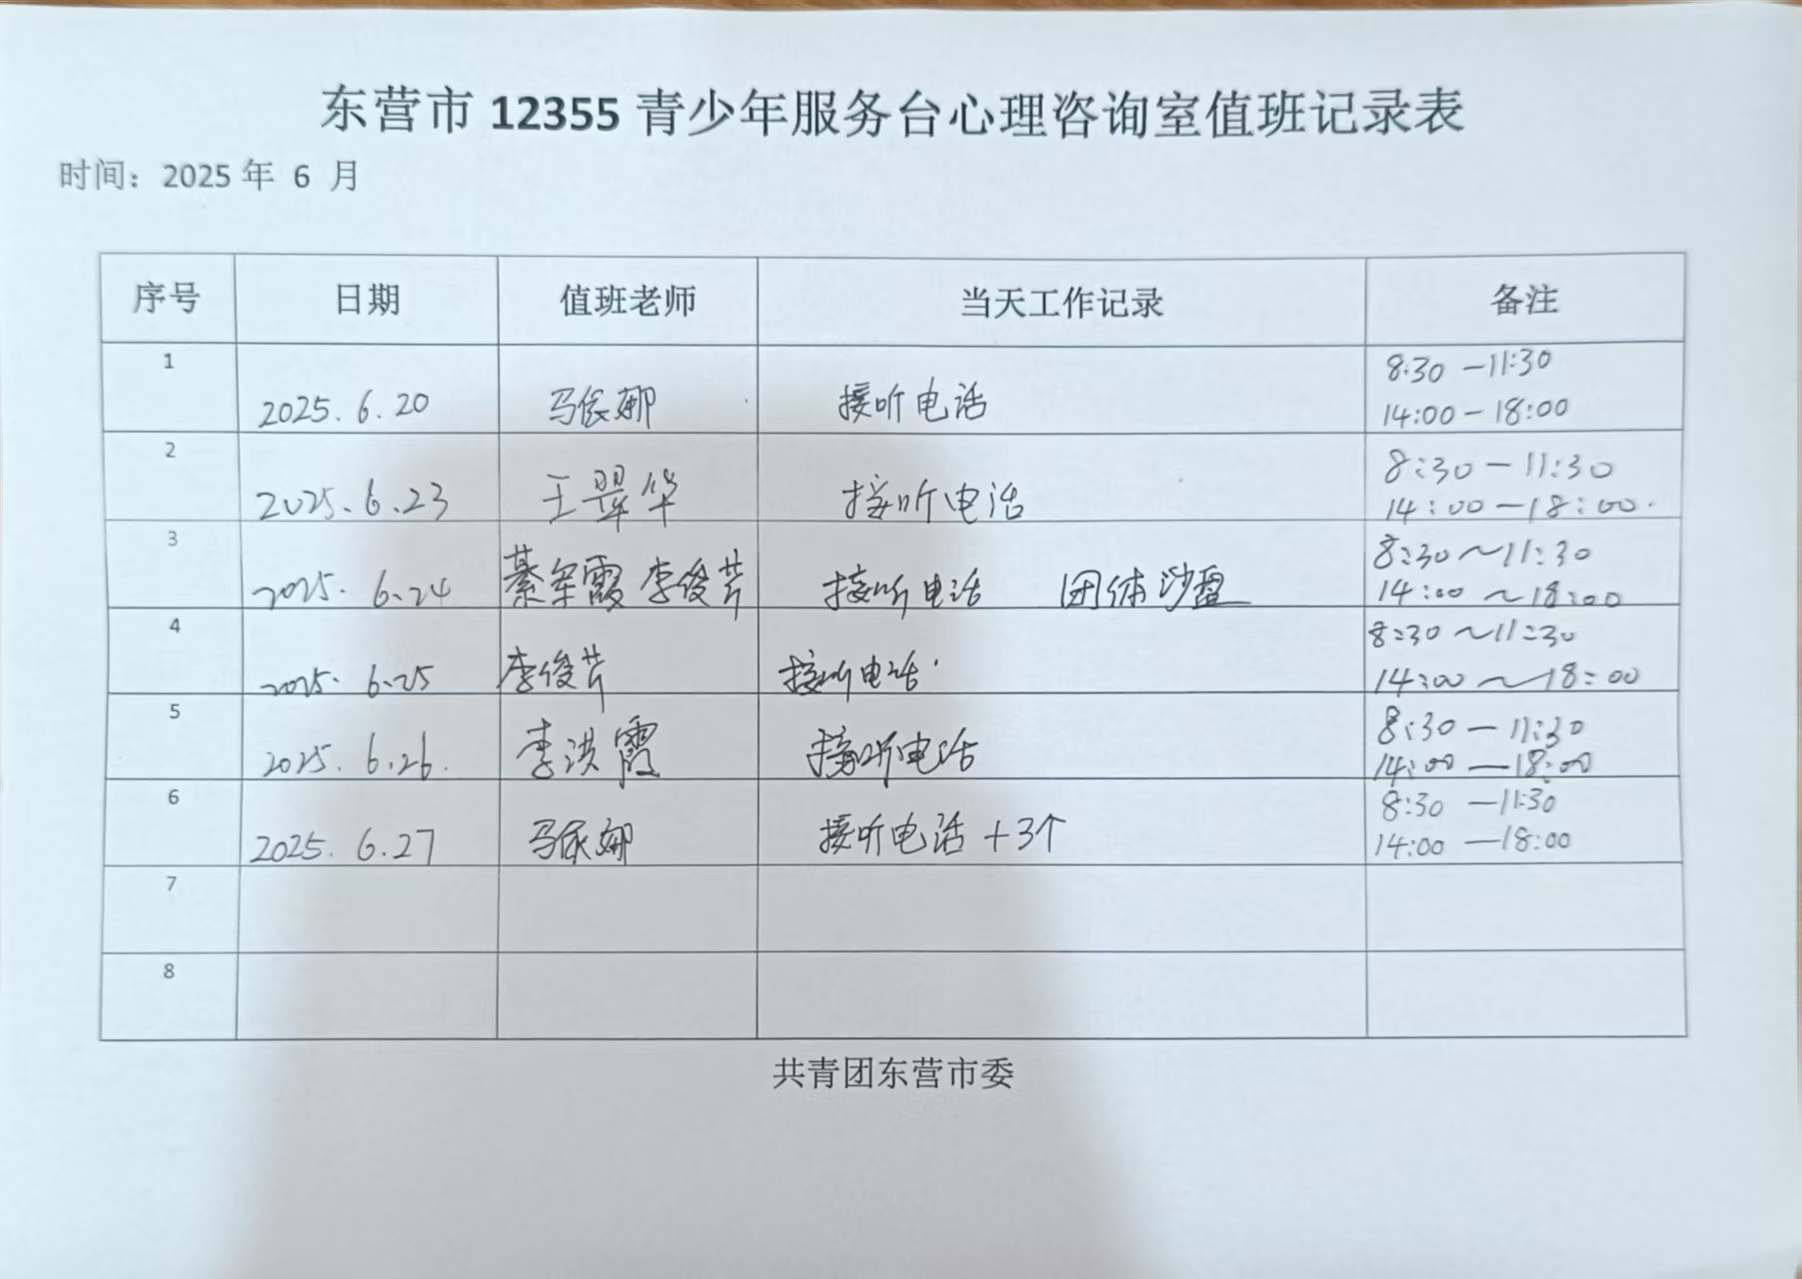 东营市 12355 青少年服务台心理咨询室值班记录表
时间：2025 年 6 月
序号 日期 值班老师 当天工作记录 备注
1 2025.6.20 马依娜 接听电话 8:30 —11:30
14:00 — 18:00
2 2025.6.23 王翠华 接听电话 8:30 — 11:30
14:00 — 18:00.
3 2025. 6.24 綦军霞 李俊芹 接听电话 团体沙盘 8:30 ～11:30
14:00 ～18:00
4 2025. 6.25 李俊芹 接听电话 8:30 ～11:30
14:00 ～18:00
5 2025. 6.26. 李洪霞 接听电话 8:30 — 11:30
14:00 —18:00
6 2025. 6.27 马依娜 接听电话 +3个 8:30 —11:30
14:00 —18:00
7
8
共青团东营市委